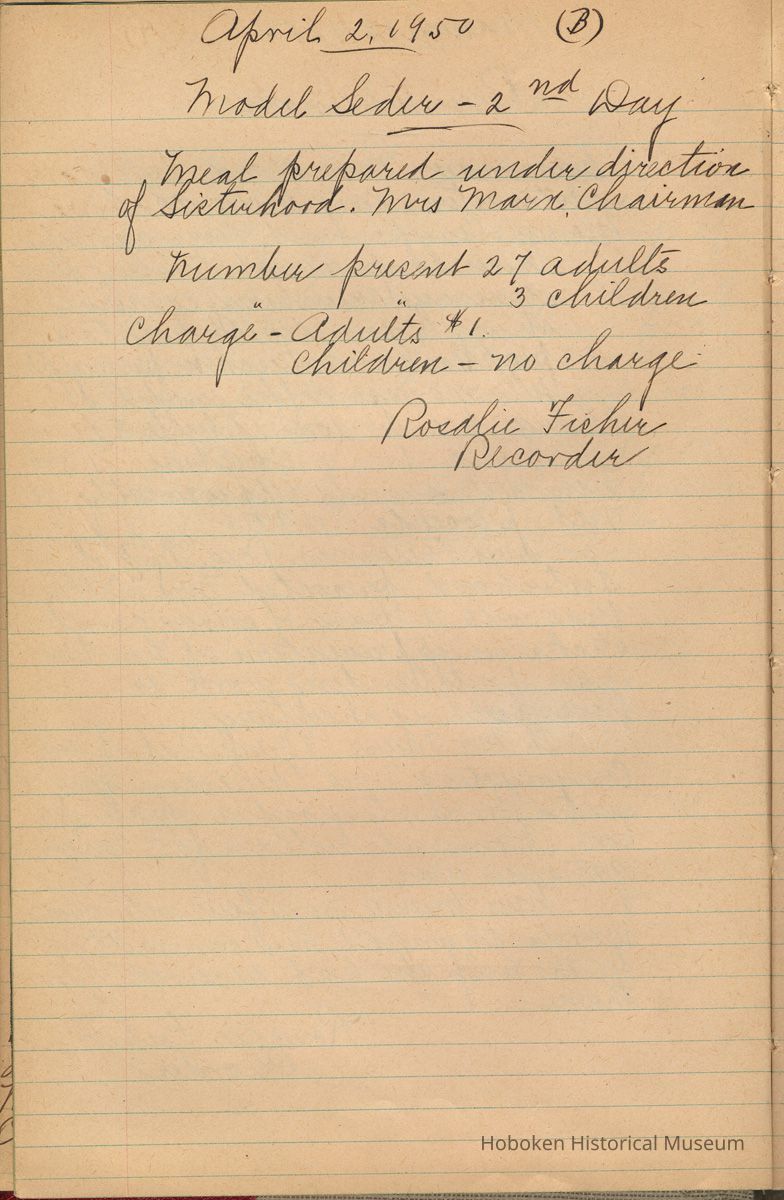 April 2, 1950 (B)
Model Seder - 2nd Day
Meal prepared under direction
of Sisterhood. Mrs Marx, Chairman
Number present 27 adults
" " 3 children
Charge - Adults $1.
Children - no charge
Rosalie Fisher
Recorder
Hoboken Historical Museum